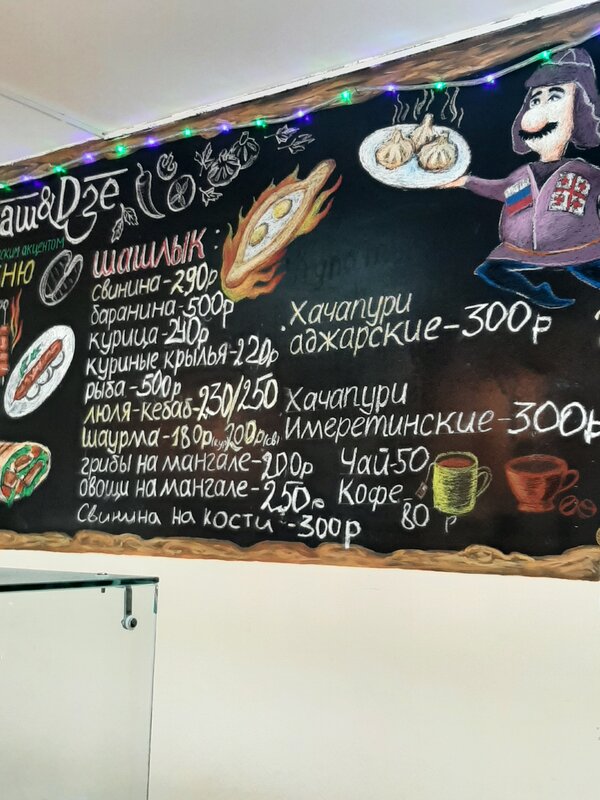 аш&Dзе
ским акцентом
ню
шашлык:
свинина-290р
баранина-500р
курица-240р
куриные крылья-220р
рыба-500р
люля-кебаб-230/250
шаурма-180р(кур)200р(св)
грибы на мангале-200р
овощи на мангале-250р
Свинина на кости -300р
Хачапури
аджарские-300р
Хачапури
Имеретинские-300р
Чай-50
Кофе-
80 р